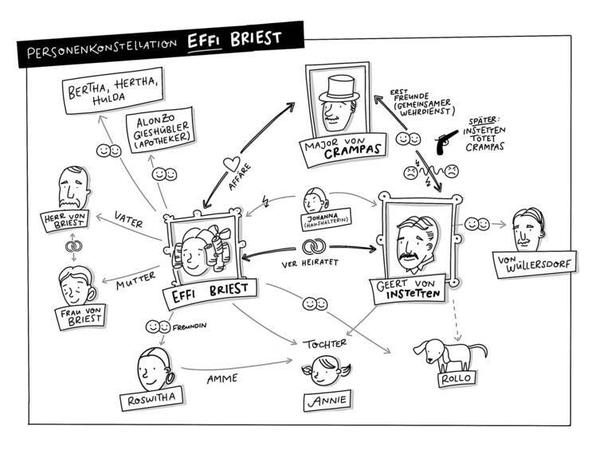 PERSONENKONSTELLATION EFFI BRIEST
BERTHA, HERTHA,
HULDA
ALONZO
GIESHÜBLER
(APOTHEKER)
MAJOR VON
CRAMPAS
ERST
FREUNDE
(GEMEINSAMER
WEHRDIENST)
SPÄTER:
INSTETTEN
TÖTET
CRAMPAS
AFFÄRE
HERR VON
BRIEST
VATER
JOHANNA
(HAUSHÄLTERIN)
VERHEIRATET
MUTTER
EFFI BRIEST
GEERT VON
INSTETTEN
VON
WÜLLERSDORF
FRAU VON
BRIEST
FREUNDIN
TOCHTER
ROSWITHA
AMME
ANNIE
ROLLO